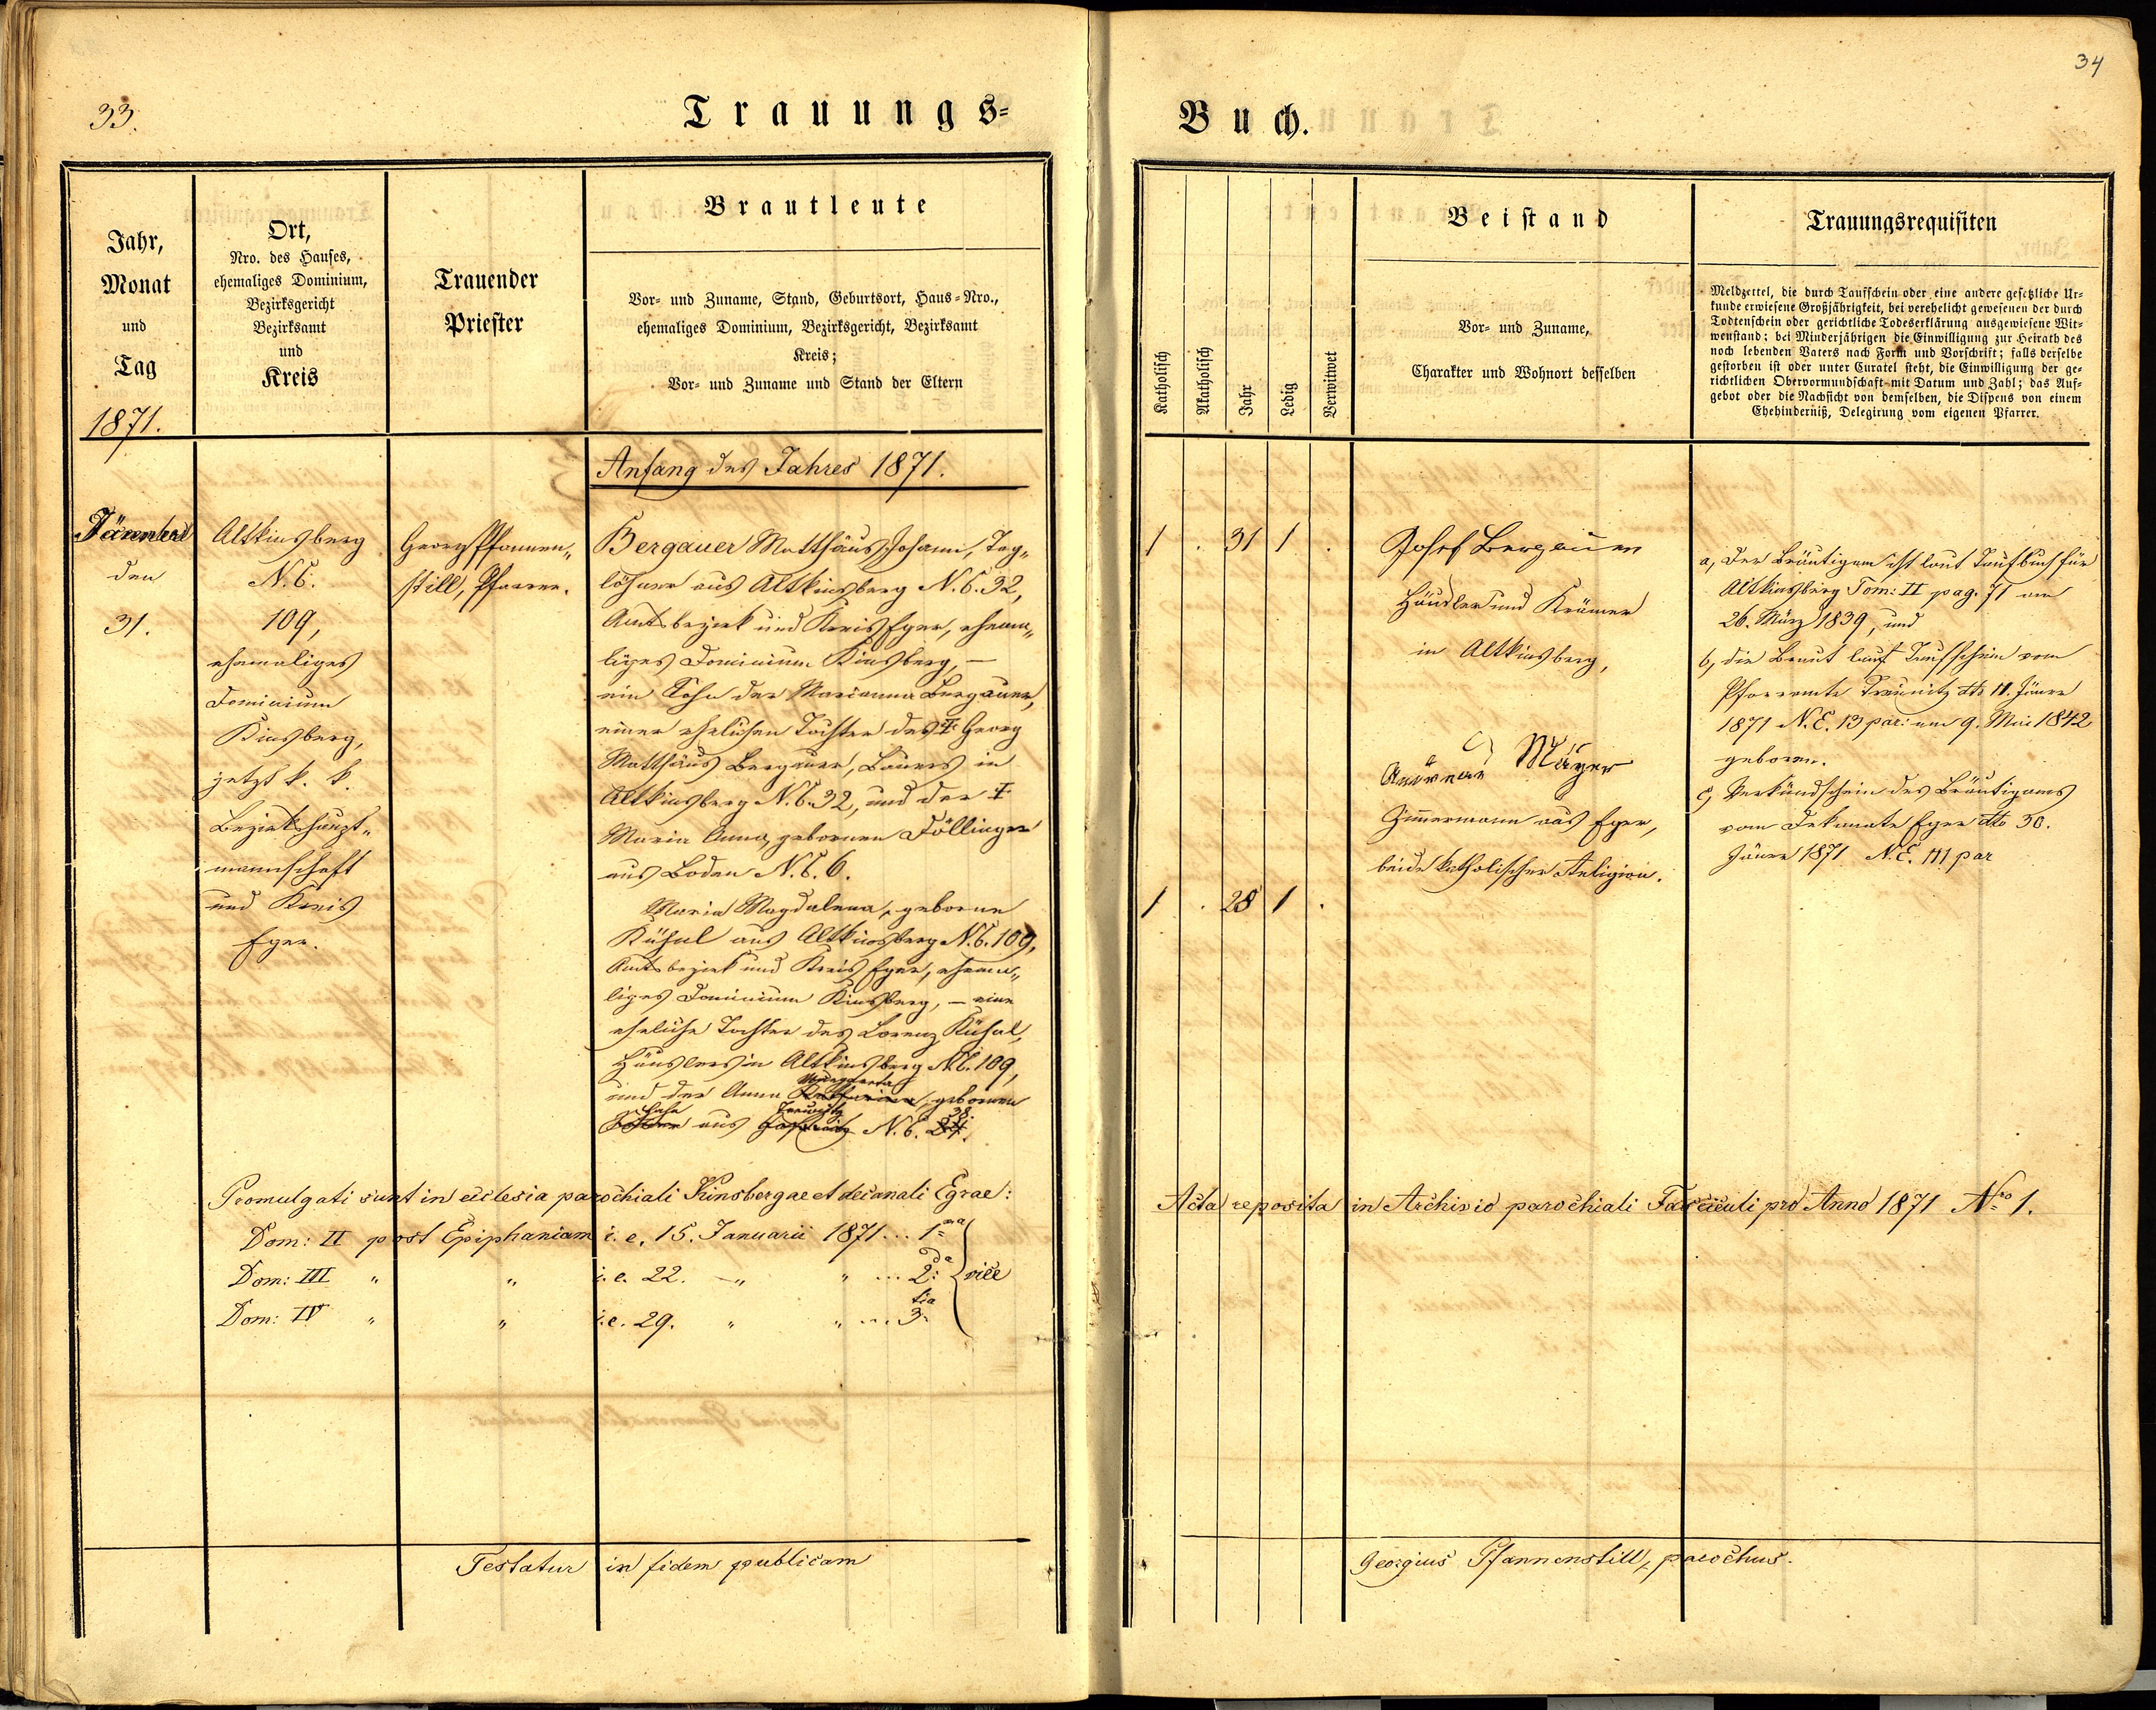 33.
Trauungs-
Jahr,
Monat
und
Tag
1871.
Ort,
Nro. des Hauses,
ehemaliges Dominium,
Bezirksgericht
Bezirksamt
und
Kreis
Trauender
Priester
Brautleute
Vor- und Zuname, Stand, Geburtsort, Haus-Nro.,
ehemaliges Dominium, Bezirksgericht, Bezirksamt
Kreis;
Vor- und Zuname und Stand der Eltern
Anfang des Jahres 1871.
den
31.
Altkinsberg
N. C.
109,
ehemaliges
Dominium
Kinsberg,
jetzt k. k.
Bezirkshaupt-
mannschaft
und Kreis
Eger.
Georg Pfannen-
still, Pfarrer.
Bergauer Matthäus Johann, Tag-
löhner aus Altkinsberg N. C. 32,
Amtsbezirk und Kreis Eger, ehema-
liges Dominium Kinsberg, —
ein Sohn der Marianna Bergauer,
einer ehelichen Tochter des † Georg
Matthäus Bergauer, Bauers in
Altkinsberg N. C. 32, und der †
Maria Anna, gebornen Döllinger
aus Boden N. C. 6.
Maria Magdalena, geborne
Kühnl aus Altkinsberg N. C. 109,
Amtsbezirk und Kreis Eger, ehema-
liges Dominium Kinsberg, — eine
eheliche Tochter des Lorenz Kühnl,
Häuslers in Altkinsberg N. C. 109,
Margaretha
und der Anna gebornen
Treunitz 38.
aus N. C. 24.
Promulgati sunt in ecclesia parochiali Kinsbergae et decanali Egrae:
Dom: II post Epiphaniam i. e. 15. Januarii 1871 ... 1ma
Dom: III " " i. e. 22. " " ... 2da vice
Dom: IV " " i. e. 29. " " ... 3tia
Testatur in fidem publicam
34
Buch.
Katholisch
Akatholisch
Jahr
Ledig
Verwitwet
Beistand
Vor- und Zuname,
Charakter und Wohnort desselben
Trauungsrequisiten
Meldzettel, die durch Taufschein oder eine andere gesetzliche Ur-
kunde erwiesene Großjährigkeit, bei verehelicht gewesenen der durch
Todtenschein oder gerichtliche Todeserklärung ausgewiesene Wit-
wenstand; bei Minderjährigen die Einwilligung zur Heirath des
noch lebenden Vaters nach Form und Vorschrift; falls derselbe
gestorben ist oder unter Curatel steht, die Einwilligung der ge-
richtlichen Obervormundschaft mit Datum und Zahl; das Auf-
gebot oder die Nachsicht von demselben, die Dispens von einem
Ehehinderniß, Delegirung vom eigenen Pfarrer.
1 . 31 1 .
1 . 28 1 .
Josef Bergauer
Händler und Krämer
in Altkinsberg,
Andreas Mayer
Zimmermann aus Eger,
beide katholischer Religion.
a, Der Bräutigam ist laut Taufbuch für
Altkinsberg Tom: II pag. 71 am
26. März 1839, und
b, die Braut laut Taufschein vom
Pfarramte Treunitz dto 11. Jäner
1871 N. E. 13 par: am 9. Mai 1842
geboren.
c, Verkündschein des Bräutigams
vom Dekanate Eger dto 30.
Jäner 1871 N. E. 111 par
Acta reposita in Archivio parochiali Fasciculi pro Anno 1871 Nro 1.
Georgius Pfannenstill, parochus.